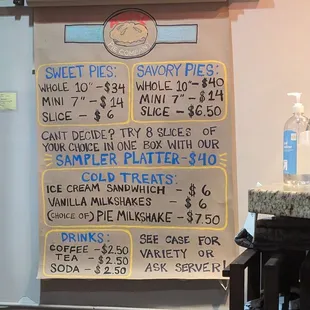 PIE COMPANY
SWEET PIES:
WHOLE 10" - $34
MINI 7" - $14
SLICE - $6
SAVORY PIES:
WHOLE 10" - $40
MINI 7" - $14
SLICE - $6.50
CANT DECIDE? TRY 8 SLICES OF
YOUR CHOICE IN ONE BOX WITH OUR
SAMPLER PLATTER - $40
COLD TREATS:
ICE CREAM SANDWHICH - $6
VANILLA MILKSHAKES - $6
(CHOICE OF) PIE MILKSHAKE - $7.50
DRINKS:
COFFEE - $2.50
TEA - $2.50
SODA - $2.50
SEE CASE FOR
VARIETY OR
ASK SERVER!